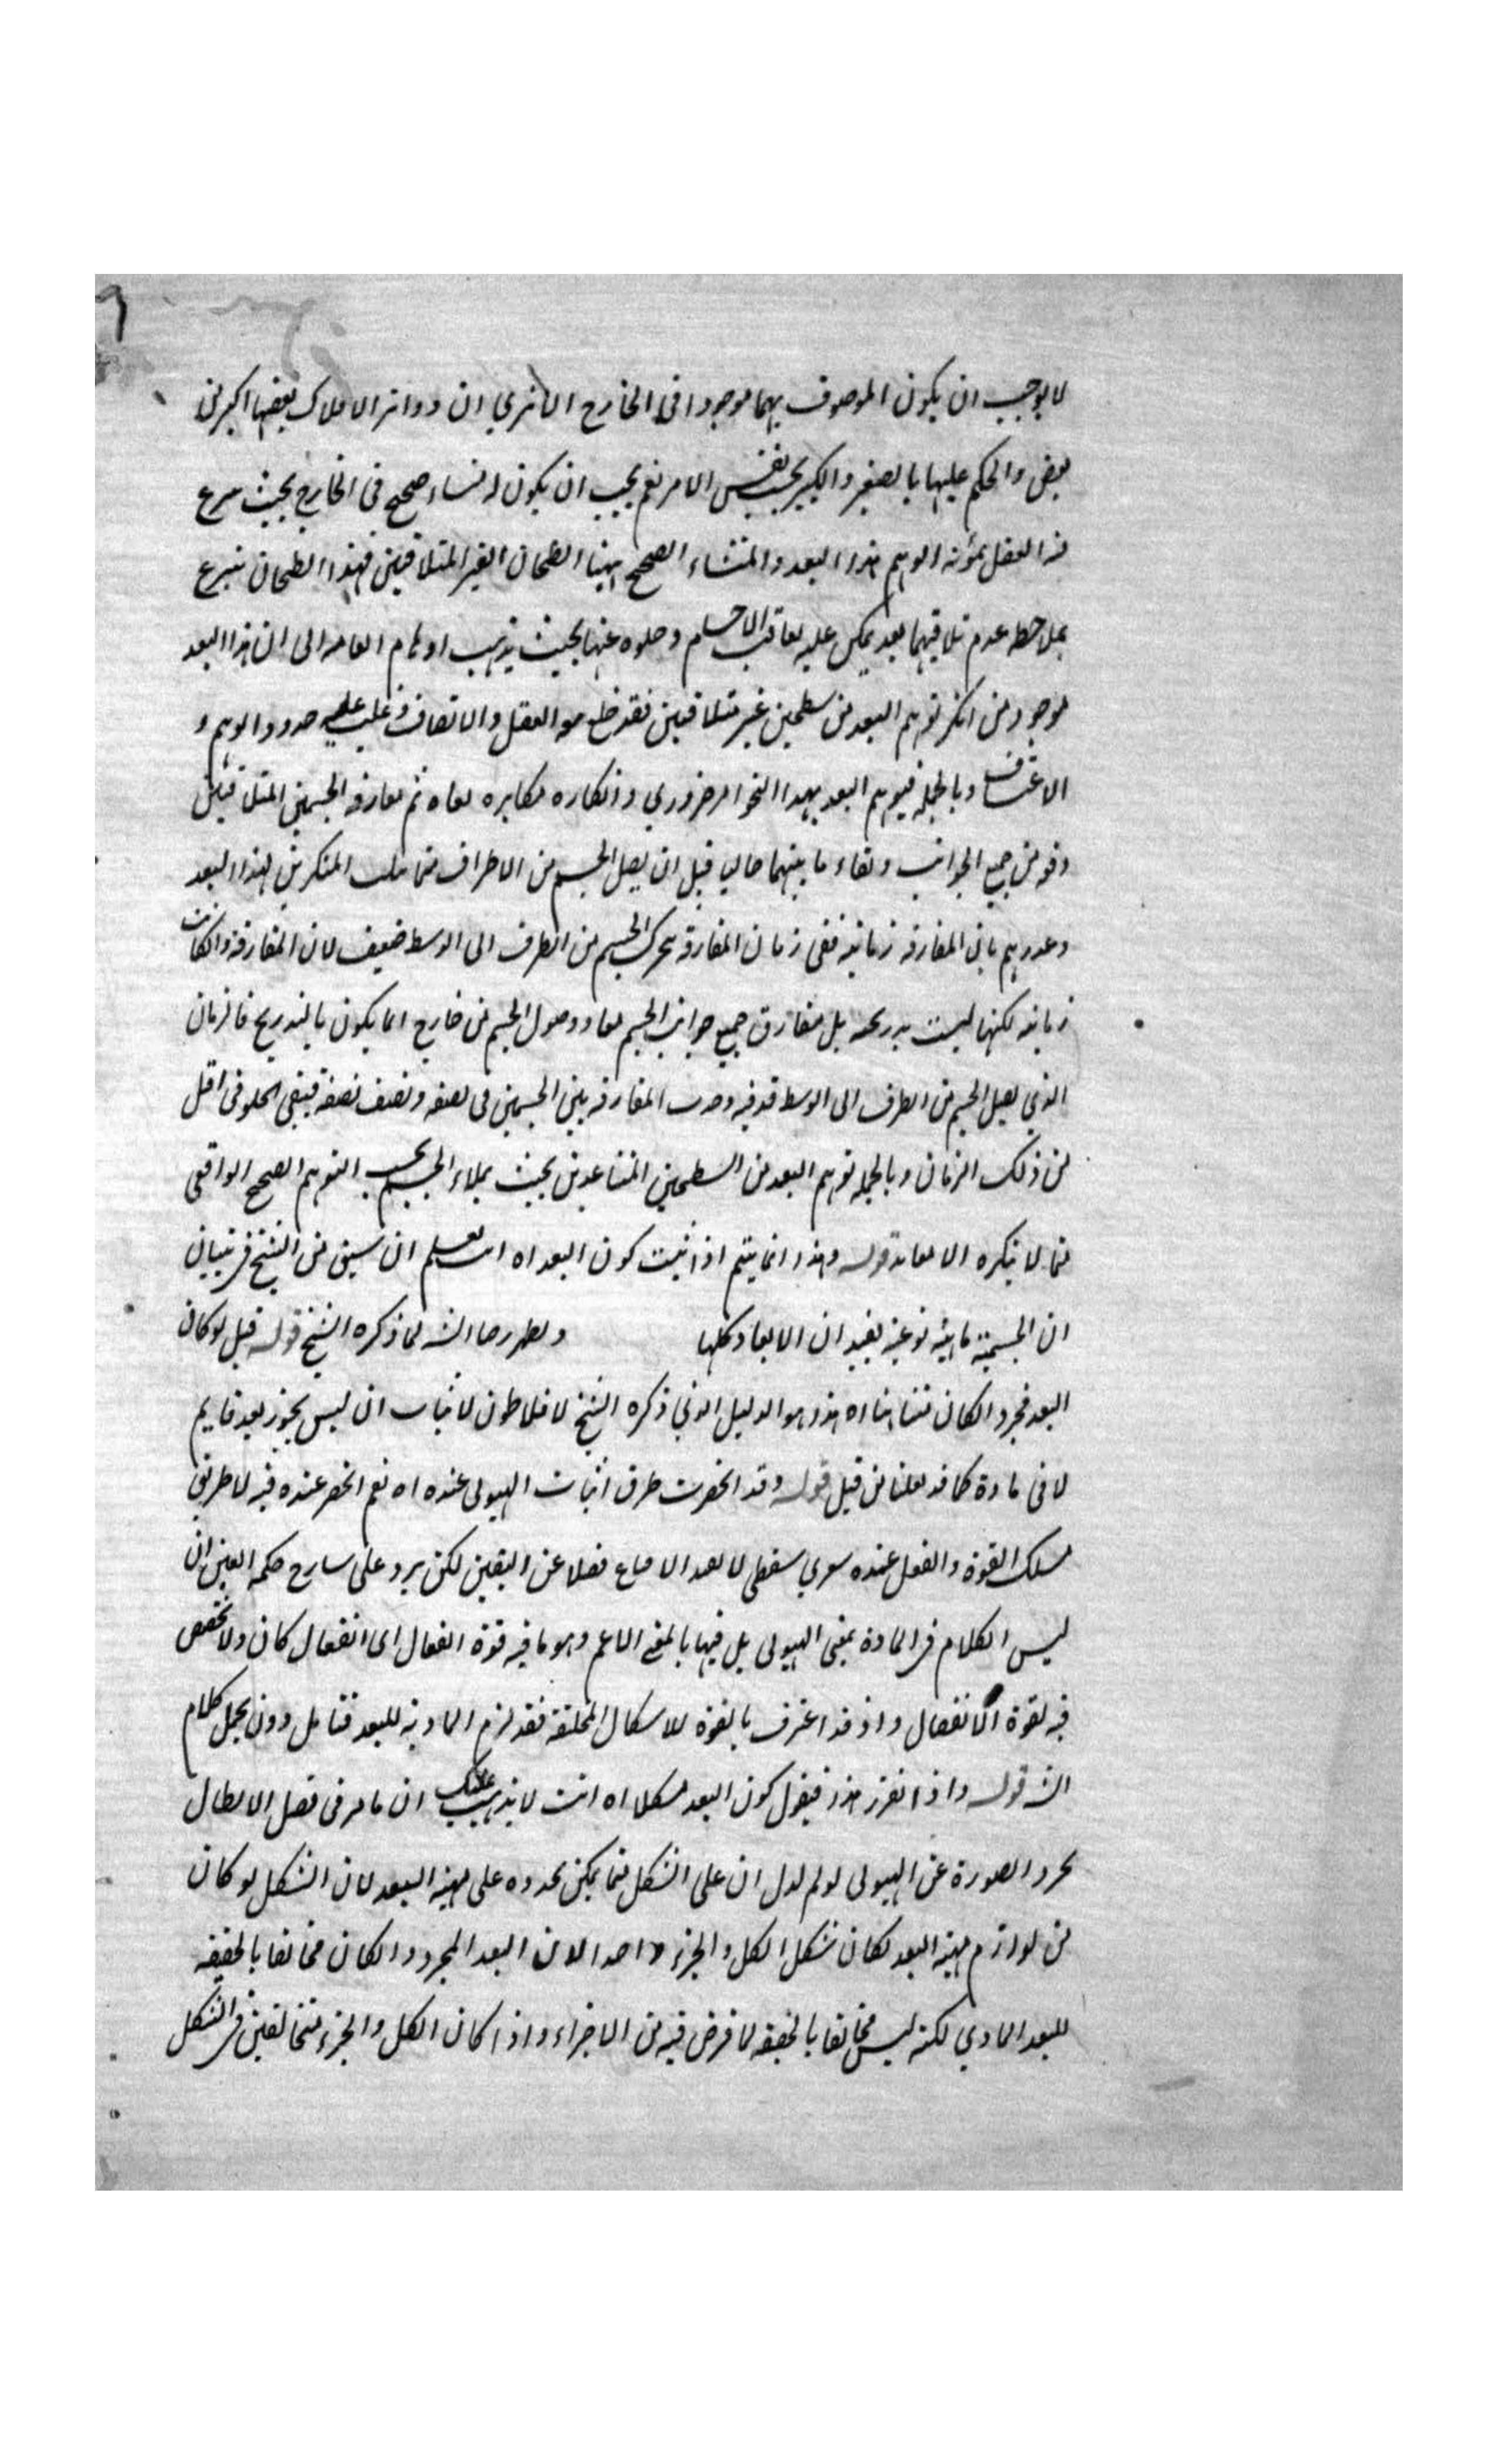 لا يوجب ان يكون الموصوف بهما موجودا في الخارج الا ترى ان دوائر الافلاك بعضها اكبر من
بعض والحكم عليها بالصغير والكبير بحسب نفس الامر نعم يجب ان يكون له منشاء صحيح في الخارج بحيث
العقل بمؤنة الوهم هذا البعد والمنشاء الصحيح ههنا السطحان الغير المتلاقيين فهذا السطحان ينتزع
بملاحظه عدم تلاقيهما بعد يمكن عليه تعاقب الاجسام وخلوه عنها بحيث يذهب اوهام العامه الى ان هذا البعد
موجود من انكر توهم البعد من سطحين غير متلاقيين فقد خلع العقل والانصاف وغلب عليه الوهم و
الاعتساف وبالجمله فتوهم البعد بهذا النحو امر ضروري وانكاره مكابره ثم مفارقه الجسمين المتلاقيين
دفعه من جميع الجوانب وبقاء ما بينهما خاليا قبل ان يصل الجسم من الاطراف مما المنكرين لهذا البعد
بان المفارقه زمانيه ففي زمان المفارقة يتحرك الجسم من الطرف الى الوسط ضعيف لان المفارقة وان كانت
زمانيه لكنها ليست بل مفارق جميع جوانب الجسم معا ووصول الجسم من خارج انما يكون بالتدريج فالزمان
الذي يصل الجسم من الطرف الى الوسط قد فيه المفارقه بين الجسمين في نصفه ونصف نصفه فيبقى الخلو في اقل
من ذلك الزمان وبالجمله توهم البعد من السطحين المتباعدين بحيث يملاء الجسم بحسب التوهم الصحيح الواقعي
مما لا ينكره الا معاند قوله وهذا انما يتم اذا ثبت كون البعد اه انت تعلم ان من الشيخ في تبيان
ان الجسمية ماهية نوعية يفيد ان الابعاد كلها لما ذكره الشيخ قوله قيل لو كان
البعد مجرد الكان متناهيا اه هذا هو الدليل الذي ذكره الشيخ لافلاطون لاثبات ان ليس يجوز بعد قايم
لا في مادة كما قد نقلنا من قبل قوله وقد انحصرت طرق اثبات الهيولى عنده اه نعم انحصر عنده فيه لا طريق
مسلك القوة والفعل عنده سفطي لا فضلا عن اليقين لكن يرد على شارح حكمة العين ان
ليس الكلام في المادة بمعنى الهيولى بل فيها بالمعنى الاعم وهو ما فيه قوة انفعال اى انفعال كان ولا تخصص
فيه لقوة الانفعال واذ قد اعترف بالقوة للاشكال المختلفة فقد لزم المادية للبعد فتامل كلام
الش قوله واذا تقرر هذا فنقول كون البعد مشكلا اه انت لا يذهب عليك ان ما مر في فصل الابطال
تجرد الصورة عن الهيولى لو تم لدل ان على الشكل مما يمكن على مهية البعد لان الشكل لو كان
من لوازم مهية البعد لكان شكل الكل والجزء واحدا لان البعد المجرد وان كان مخالفا بالحقيقه
للبعد المادي لكنه ليس مخالفا بالحقيقه لما فرض فيه من الاجزاء واذا كان الكل والجزء متخالفين في الشكل